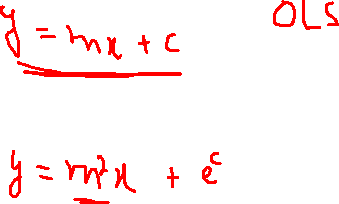 y = mx + c
OLS
y = m²x + e^c